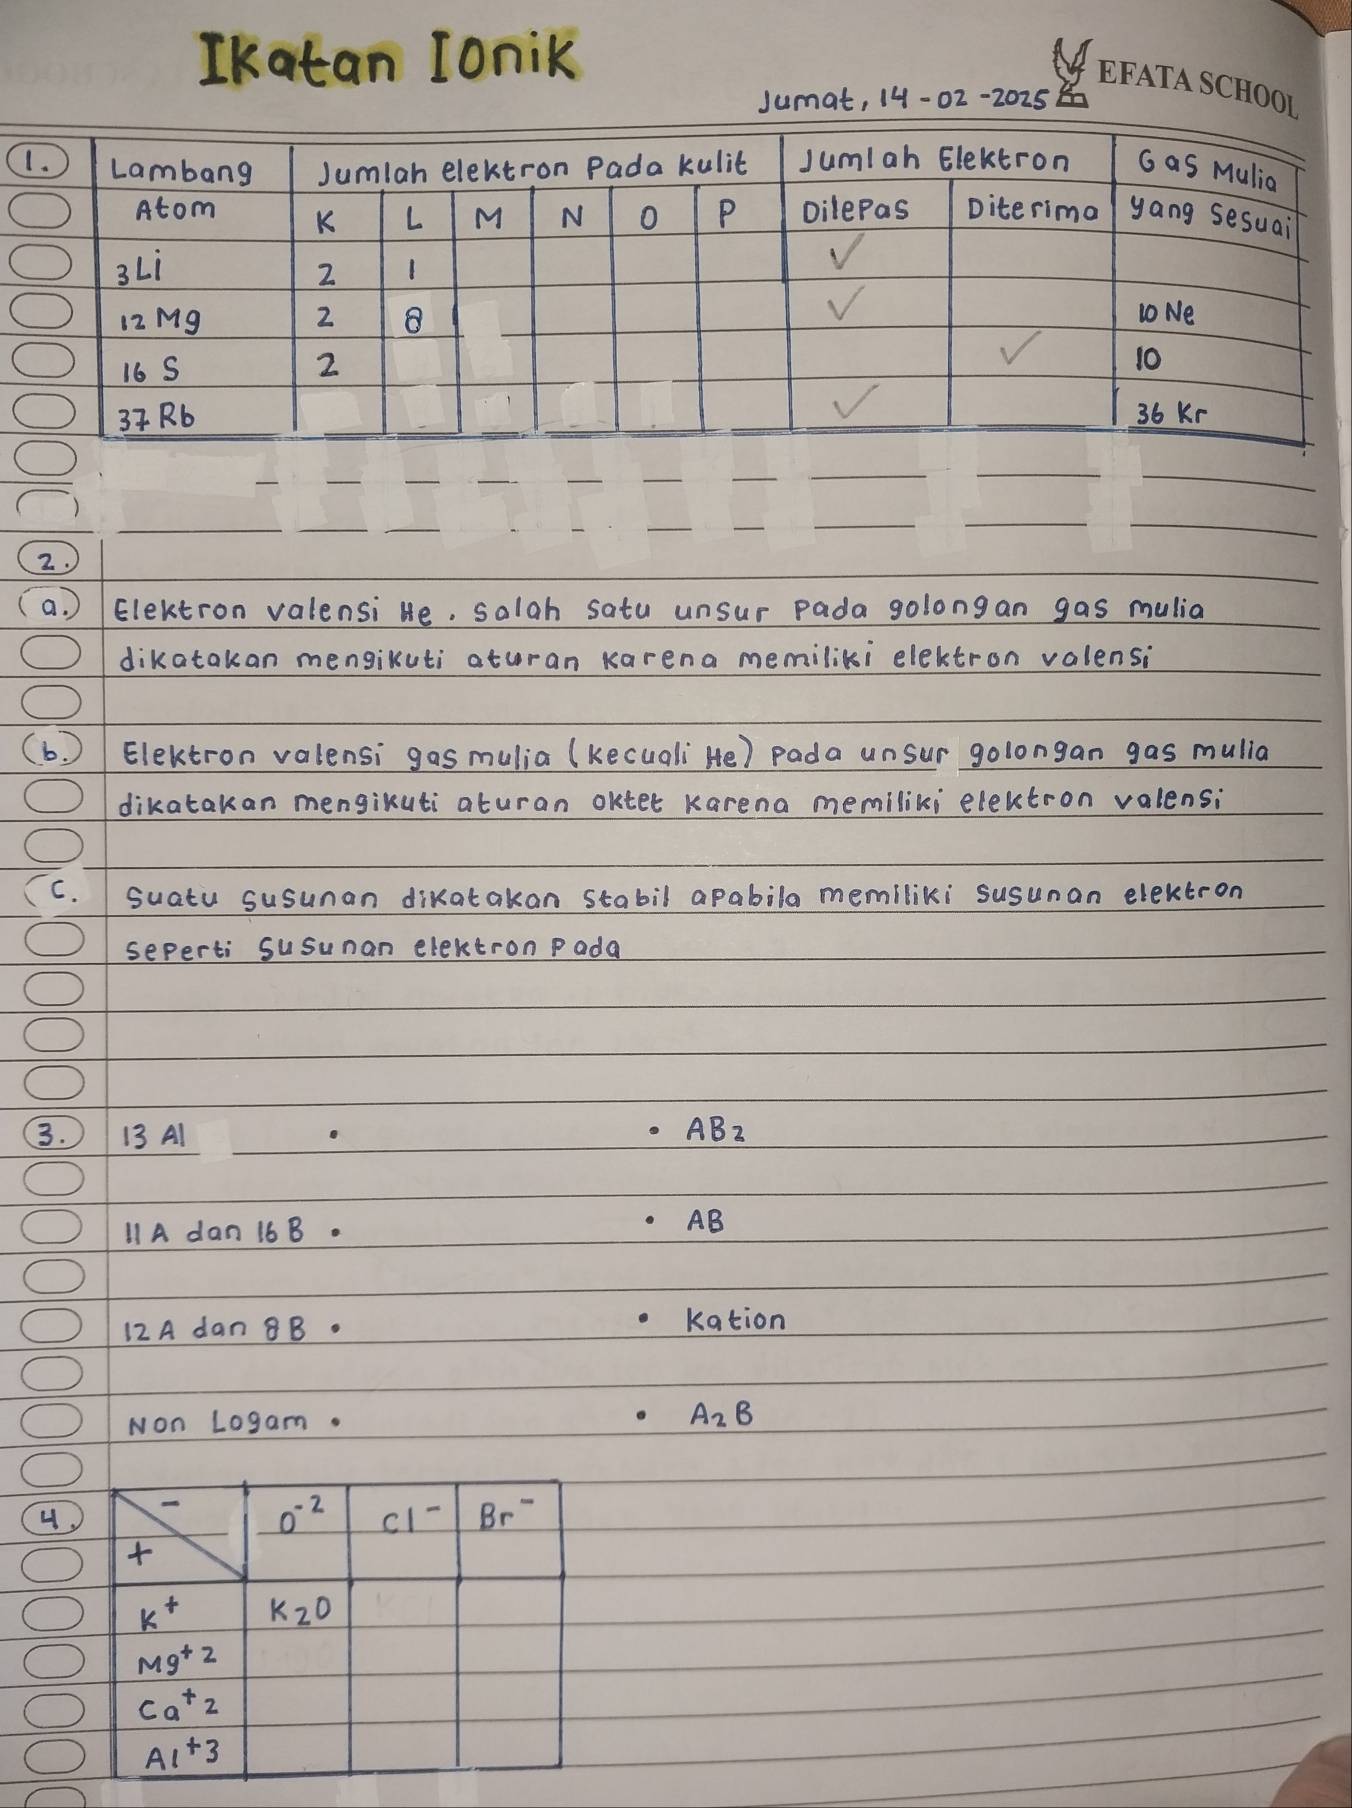 Ikatan Ionik
EFATA SCHOOL
Jumat, 14-02-2025
1. Lambang Atom Jumlah elektron Pada kulit Jumlah Elektron Gas Mulia yang sesuai
K L M N O P Dilepas Diterima
3 Li 2 1 ✓
12 Mg 2 8 ✓ 10 Ne
16 S 2 ✓ 10
37 Rb ✓ 36 Kr
2.
a. Elektron valensi He. salah satu unsur pada golongan gas mulia
dikatakan mengikuti aturan karena memiliki elektron valensi
b. Elektron valensi gas mulia (kecuali He) pada unsur golongan gas mulia
dikatakan mengikuti aturan oktet karena memiliki elektron valensi
c. Suatu susunan dikatakan stabil apabila memiliki susunan elektron
seperti susunan elektron pada
3. 13 Al • • AB2
11 A dan 16 B • • AB
12 A dan 8 B • • Kation
Non Logam • • A2B
4. - O-2 Cl- Br-
+
K+ K2O
Mg+2
Ca+2
Al+3